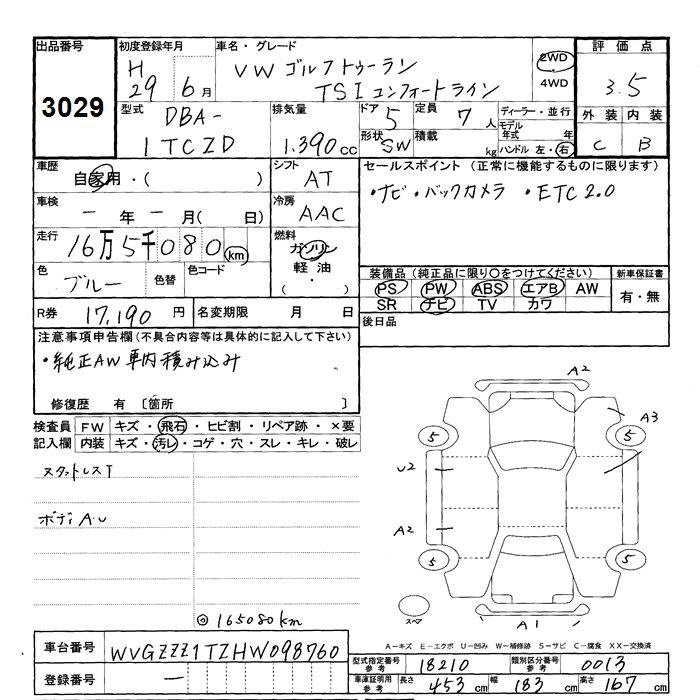 出品番号 3029
初度登録年月 H 29 6月
車名・グレード VW ゴルフトゥーラン TSIコンフォートライン
2WD 4WD
評価点 3.5
外装 内装
C B
型式 DBA-1TCZD
排気量 1.390cc
ドア 5 定員 7人
形状 SW 積載 kg
ディーラー・並行
モデル年式 年
ハンドル 左・右
車歴 自家用・( )
シフト AT
車検 ー年ー月( 日)
冷房 AAC
走行 16万5千080km
燃料 ガソリン 軽油 ( ・ )
色 ブルー 色替 色コード
R券 17,190円 名変期限 月 日
セールスポイント (正常に機能するものに限ります)
・ナビ・バックカメラ・ETC2.0
装備品 (純正品に限り○をつけてください)
PS PW ABS エアB AW
SR ナビ TV カワ
新車保証書 有・無
後日品
注意事項申告欄 (不具合内容等は具体的に記入して下さい)
・純正AW車内積み込み
修復歴 有 〔箇所 〕
検査員記入欄
FW キズ・飛石・ヒビ割・リペア跡・×要
内装 キズ・汚レ・コゲ・穴・スレ・キレ・破レ
スタットレスT
ボディA.U
◎165080km
A2
A3
5 5
U2
A2
5 5
スペア
A1
A-キズ E-エクボ U-凹み W-補修跡 S-サビ C-腐食 XX-交換済
車台番号 WVGZZZ1TZHW098760
登録番号 ー
型式指定番号 参考 18210 類別区分番号 参考 0013
車庫証明用 参考 長さ 453cm 幅 183cm 高さ 167cm